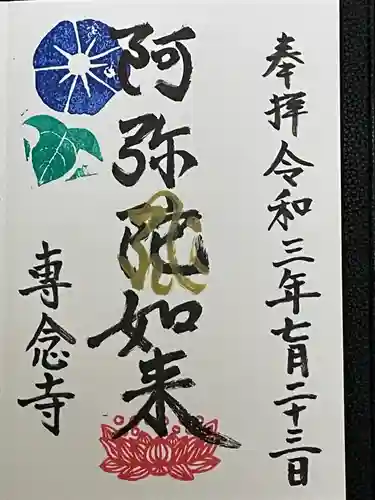 奉拝令和三年七月二十三日
阿弥陀如来
専念寺